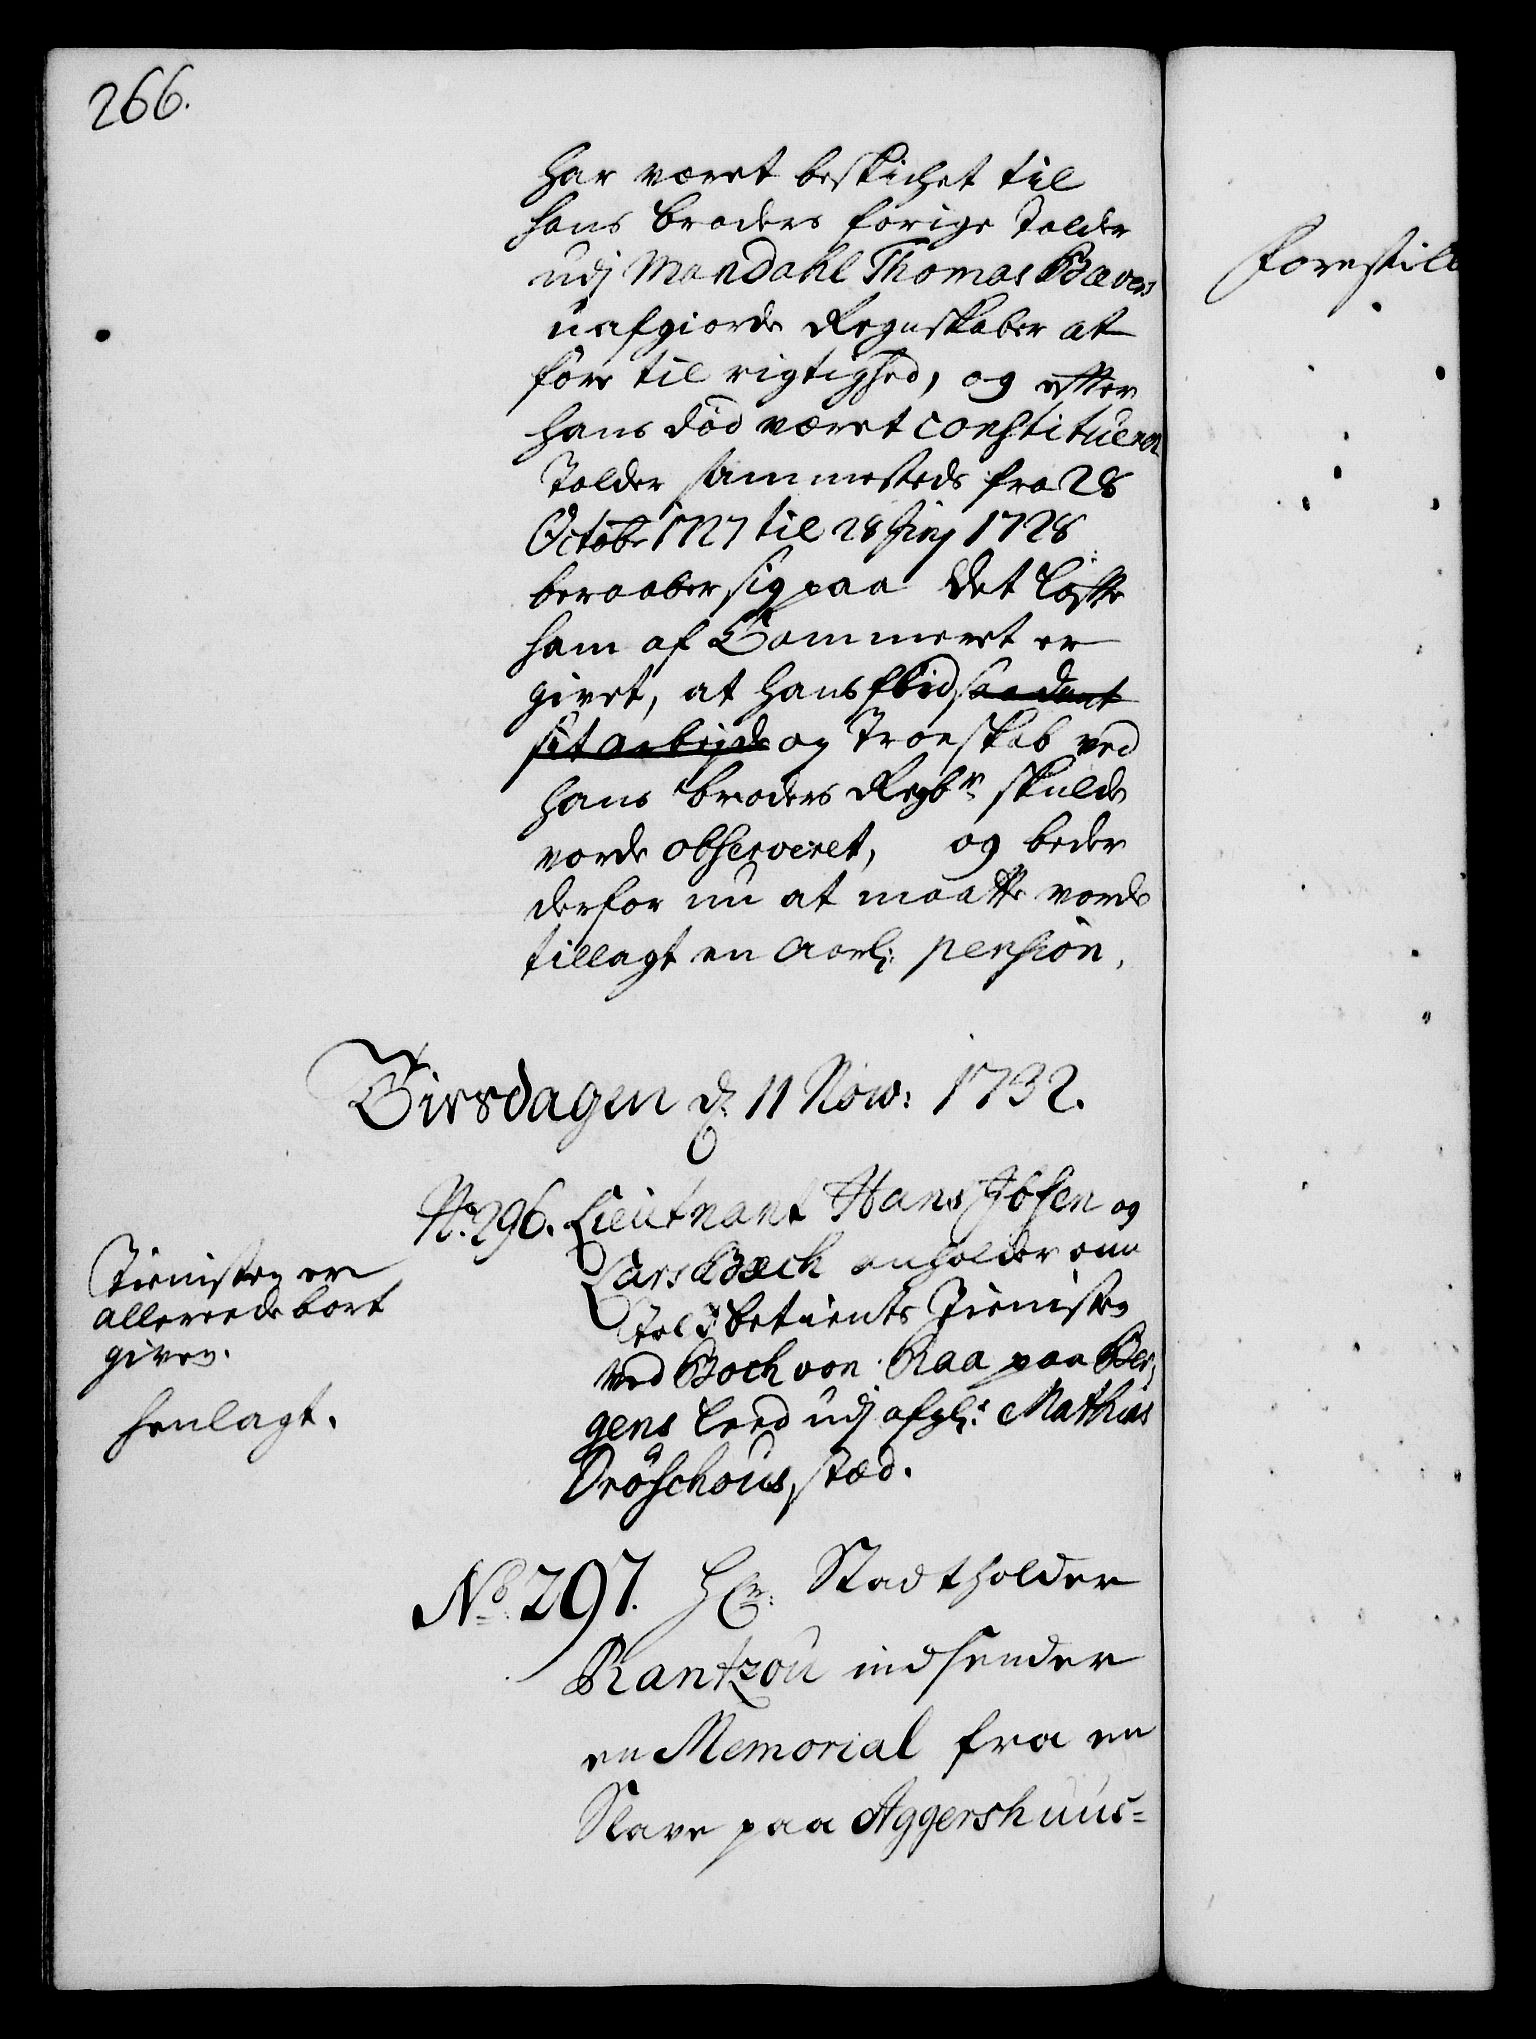 266.
har været beskichet til
hans broders forige Tolder
udj Mandahl Thomas Bævers
uafgiorde Regnskaber at
føre til rigtighed, og efter
hans død været constitueret
Tolder sammesteds fra 28
Octobr 1727 til 28 Junj 1728
beraaber sig paa det løffte
ham af Cammeret er
givet, at hans flid saadant
sit arbejde og Troeskab ved
hans broders Regbr skulde
vorde observeret, og beder
derfor nu at maatte vorde
tillagt en aarlj: pension.
Tirsdagen d. 11 Nov: 1732.
No. 296. Lieutnant Hans Ibsen og
Lars Bæch anholder om
Toldbetients Tienisten
ved Boch von Raa paa Ber,
gens leed udj afgl: Mathias
Dröschous stæd.
Tienisten er
allereede bort
given.
henlagt.
No. 297. Hr: Stadtholder
Rantzou indsender
en Memorial fra en
Slave paa Aggershuus=
forestill